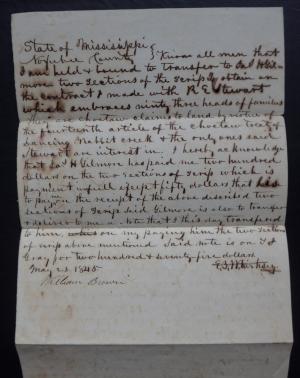 State of Mississippi
Noxubee County } Know all men that
I am held & bound to transfer to Jas H Gil-
more two sections of the Scrip I obtain on
the contract I made with R E Stewart
which embraces ninty three heads of families
their are choctaw claims to land by virtue of
the fourteenth article of the choctaw treaty
Dancing Rabbit creek & the only ones said
Stewart are interest in. I hereby acknowledge
that Jas H Gilmore has paid me two hundred
dollars on the two sections of Scrip which is
payment in full except fifty dollars that has
to pay on the receipt of the above described two
sections of Scrip said Gilmore is also to transfer
& deliver to me a note that I this day transfered
to him, on my paying him the two sections
of scrip above mentioned Said note is on
Gray for two hundred & seventy five dollars
May 1845
William Brown